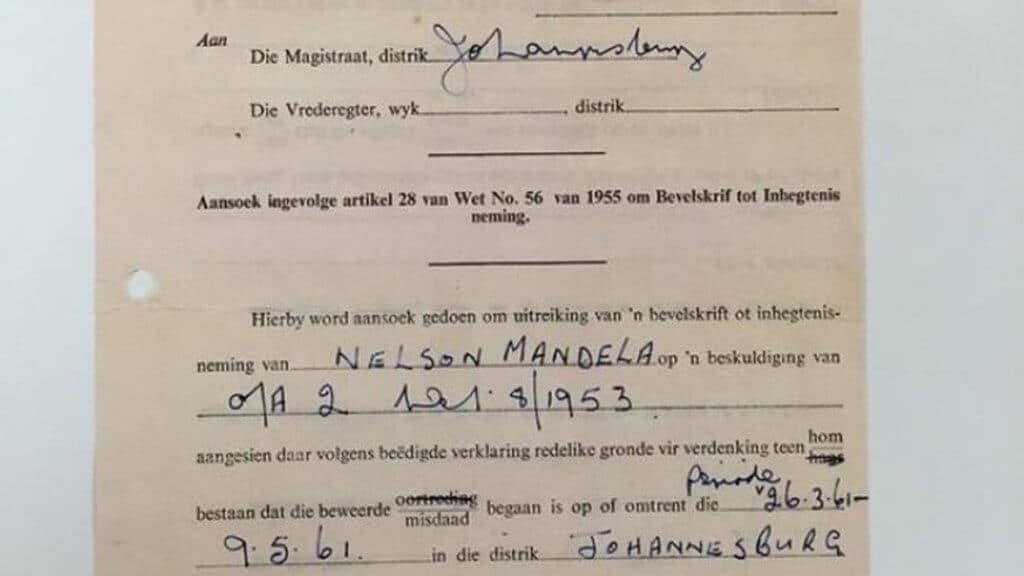 Aan
Die Magistraat, distrik Johannesburg
Die Vrederegter, wyk , distrik
Aansoek ingevolge artikel 28 van Wet No. 56 van 1955 om Bevelskrif tot Inhegtenis
neming.
Hierby word aansoek gedoen om uitreiking van 'n bevelskrift ot inhegtenis-
neming van NELSON MANDELA op 'n beskuldiging van
o/A 2 Wet 8/1953
aangesien daar volgens beëdigde verklaring redelike gronde vir verdenking teen hom
haar
periode
bestaan dat die beweerde oortreding begaan is op of omtrent die 26.3.61-
misdaad
9.5.61. in die distrik JOHANNESBURG